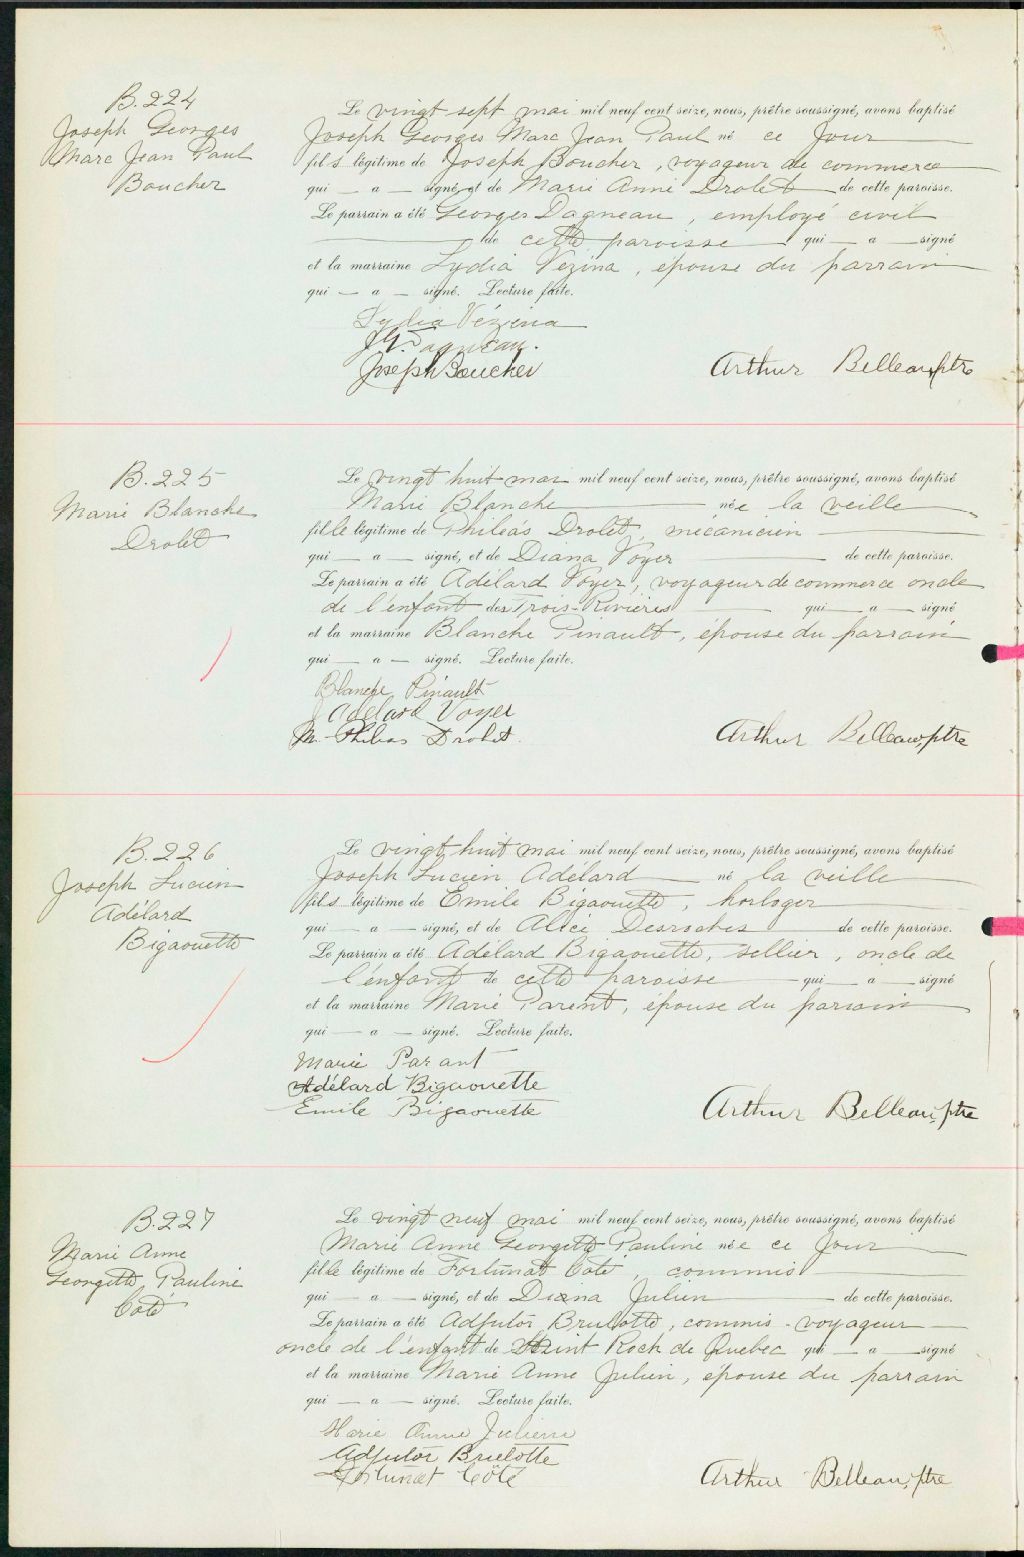 B.224
Joseph Georges
Marc Jean Paul
Boucher
Le vingt sept mai mil neuf cent seize, nous, prêtre soussigné, avons baptisé
Joseph Georges Marc Jean Paul né ce jour
fils légitime de Joseph Boucher, voyageur de commerce
qui — a — signé, et de Marie Anne Drolet de cette paroisse.
Le parrain a été Georges Dagneau, employé civil
de cette paroisse qui — a — signé
et la marraine Lydia Vézina, épouse du parrain
qui — a — signé. Lecture faite.
Lydia Vézina
J.G. Dagneau.
Joseph Boucher
Arthur Belleau, ptre
B.225
Marie Blanche
Drolet
Le vingt huit mai mil neuf cent seize, nous, prêtre soussigné, avons baptisé
Marie Blanche née la veille
fille légitime de Philéas Drolet, mécanicien
qui — a — signé, et de Diana Voyer de cette paroisse.
Le parrain a été Adélard Voyer, voyageur de commerce oncle
de l'enfant des Trois-Rivières qui — a — signé
et la marraine Blanche Pinault, épouse du parrain
qui — a — signé. Lecture faite.
Blanche Pinault
Adélard Voyer
M. Philéas Drolet.
Arthur Belleau, ptre
B.226
Joseph Lucien
Adélard
Bigaouette
Le vingt huit mai mil neuf cent seize, nous, prêtre soussigné, avons baptisé
Joseph Lucien Adélard né la veille
fils légitime de Emile Bigaouette, horloger
qui — a — signé, et de Alice Desroches de cette paroisse.
Le parrain a été Adélard Bigaouette, sellier, oncle de
l'enfant de cette paroisse qui — a — signé
et la marraine Marie Parent, épouse du parrain
qui — a — signé. Lecture faite.
Marie Parant
Adélard Bigaouette
Emile Bigaouette
Arthur Belleau, ptre
B.227
Marie Anne
Georgette Pauline
Côté
Le vingt neuf mai mil neuf cent seize, nous, prêtre soussigné, avons baptisé
Marie Anne Georgette Pauline née ce jour
fille légitime de Fortunat Coté, commis
qui — a — signé, et de Diana Julien de cette paroisse.
Le parrain a été Adjutor Brulotte, commis-voyageur
oncle de l'enfant de Saint Roch de Quebec qui — a — signé
et la marraine Marie Anne Julien, épouse du parrain
qui — a — signé. Lecture faite.
Marie Anne Julien
Adjutor Brulotte
Fortunat Côté
Arthur Belleau, ptre